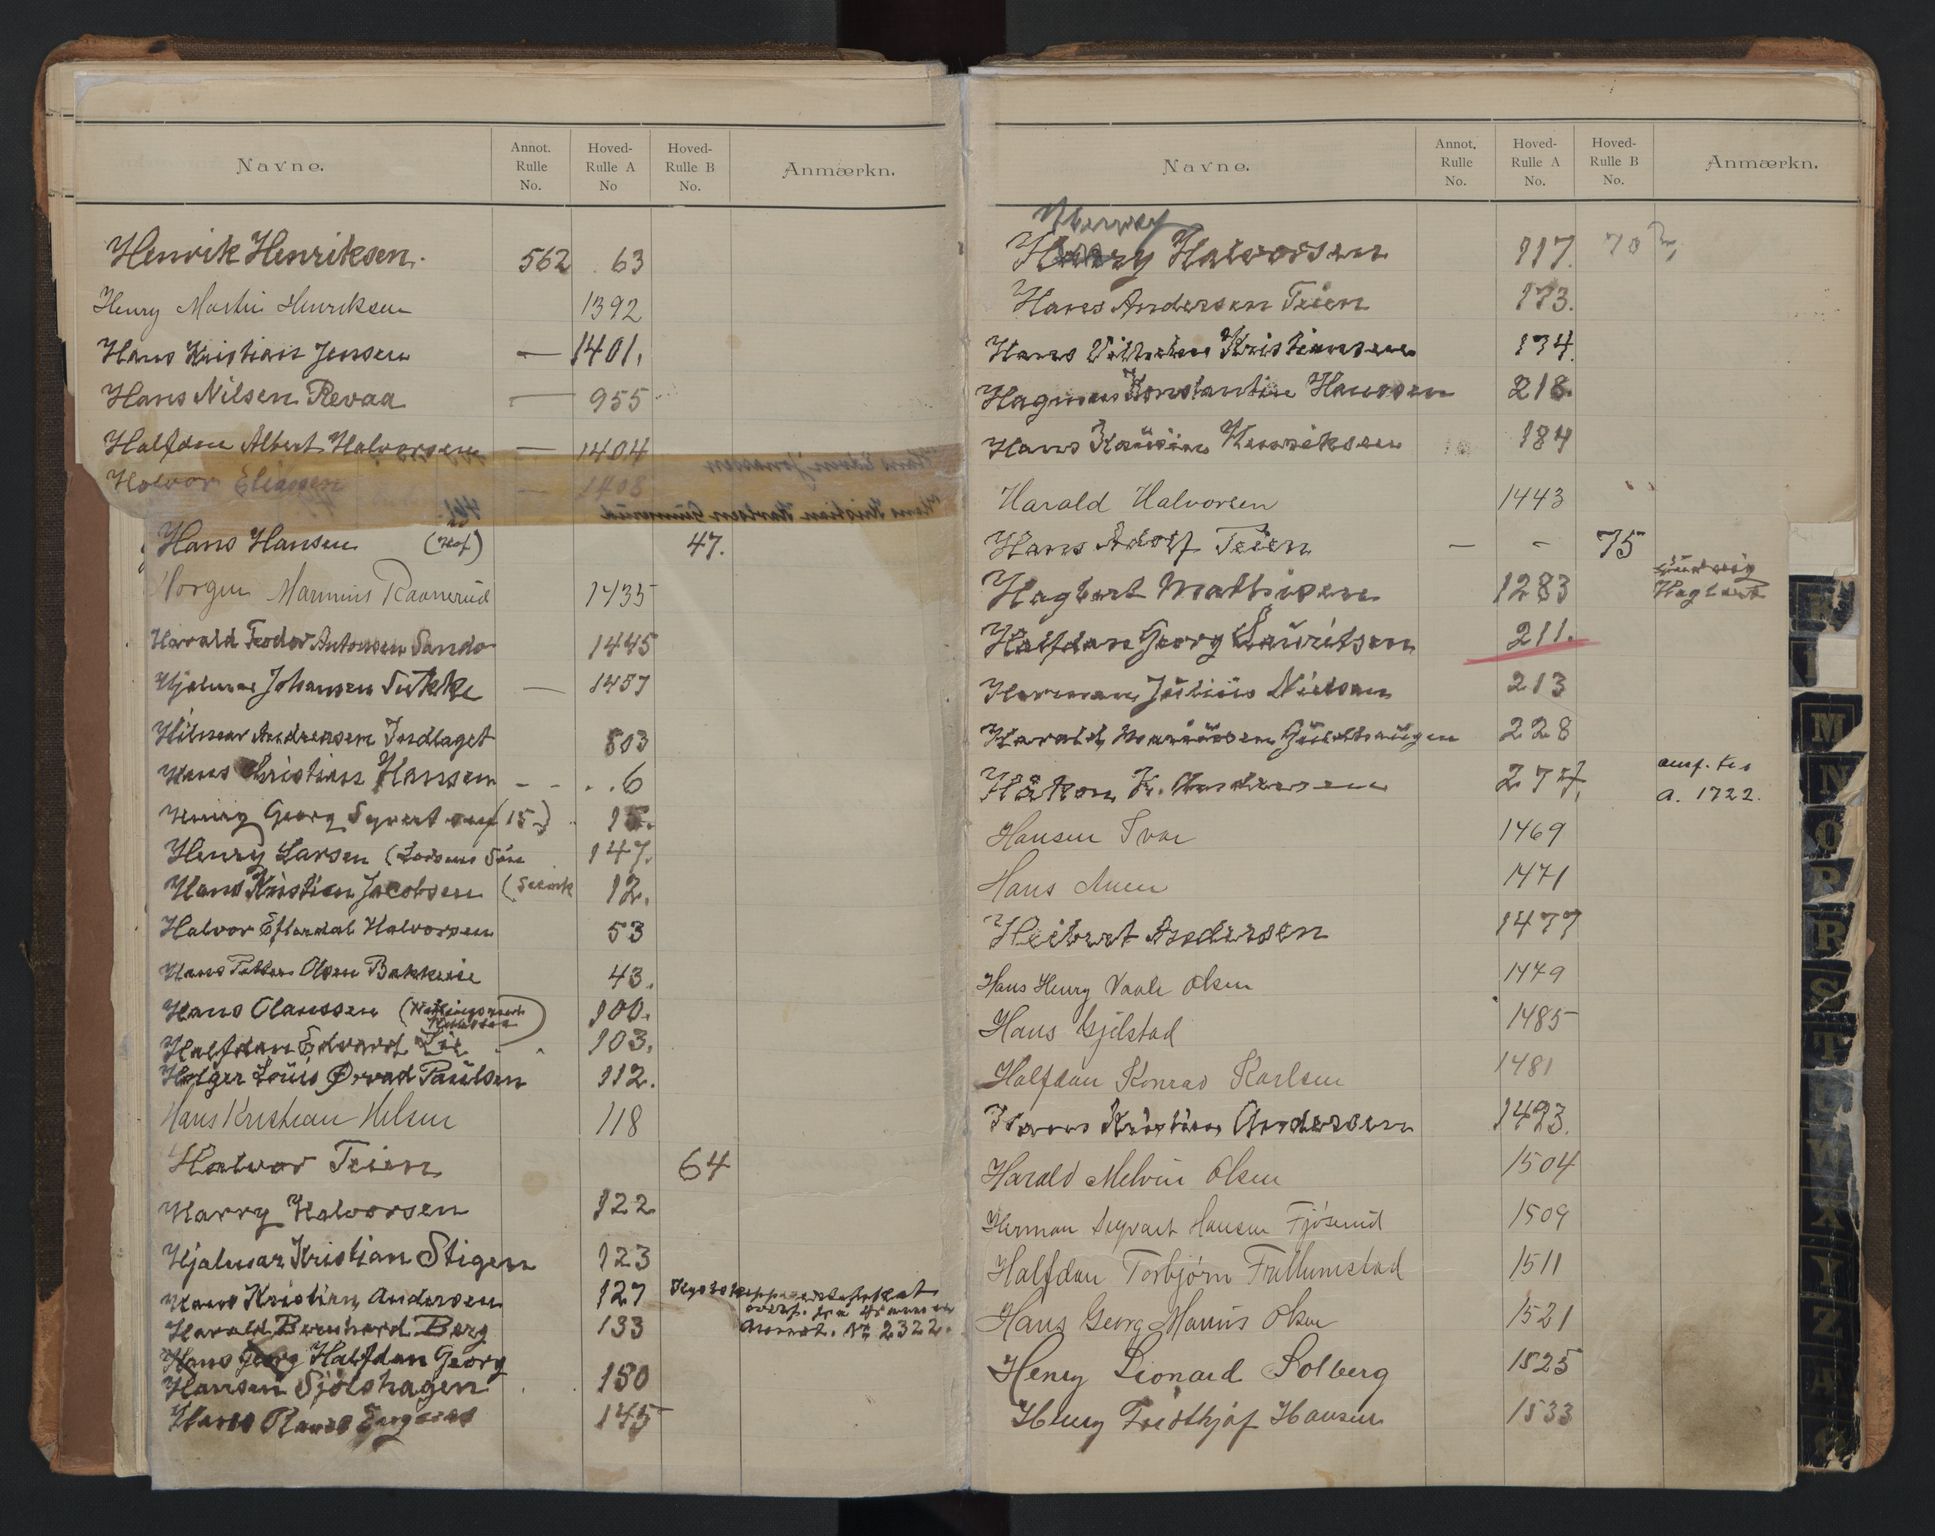 Navne. Annot. Rulle No. Hoved-Rulle A No Hoved-Rulle B No. Anmærkn.
Henrik Henriksen. 562 63
Henry Martin Henriksen 1392
Hans Kristian Jensen — 1401.
Hans Nilsen Revaa — 955
Halfdan Albert Halvorsen — 1404
Halvor Eliassen — 1408
Hans Hansen (Hof) 47.
Marinius Raanerud 1435
Harald Teodor Antonsen Sando 1445
Hjalmar Johansen Sukke — 1457
Hilmar Andreasen Indlaget 803
Hans Kristian Hansen - - . . 6
Henry Georg Syvertsen (15-) 15.
Henry Larsen (Larsens Søn 147.
Hans Kristian Jacobsen ( 12.
Halvor Eftandal Halvorsen 53
Hans Petter Olsen Bakkeie 43.
Hans Olaussen 100.
Halfdan Edvard Lie 103.
Holger Louis Ørvad Paulsen 112.
Hans Kristian Nilsen 118
Halvor Teien 64
Harry Halvorsen 122
Hjalmar Kristian Stigen 123
Hans Kristian Andersen 127
overf. fra
Harald Bernhard Berg 133 Annot. Nr 2322.
Hans Georg Halfdan Georg
Hansen Sjølshagen 130
Hans 145
Navne. Annot. Rulle No. Hoved-Rulle A No. Hoved-Rulle B No. Anmærkn.
Halvorsen 117. 70
Hans Andersen Teien 173.
Hans Vilhelm Kristiansen 174.
Hagman Konstantin Hansen 218.
Hans Henriksen 184
Harald Halvorsen 1443
Hans Adolf Teien — - 75
Hagbart Mathisen 1283 Hagbart
Halfdan Georg Lauritsen 211.
Herman Julius Nielsen 213
Harald Mariusen Gulthaugen 228
Håkon K. Andersen 274. overf. til
a. 1722.
Hansen Ivar 1469
Hans Moen 1471
Heibert Andersen 1477
Hans Henry Vaale Olsen 1479
Hans Gjelstad 1485
Halfdan Konrad Karlsen 1481
Hans Kristian Andersen 1493.
Harald Melvin Olsen 1504
Herman Sigvart Hansen Fjøserud 1509
Halfdan Torbjørn Fullumstad 1511
Hans Georg Marius Olsen 1521
Henry Leonard Solberg 1525
Henry Fridthjof Hansen 1533
M
N
O
P
R
S
T
U
W
X
Y
Z